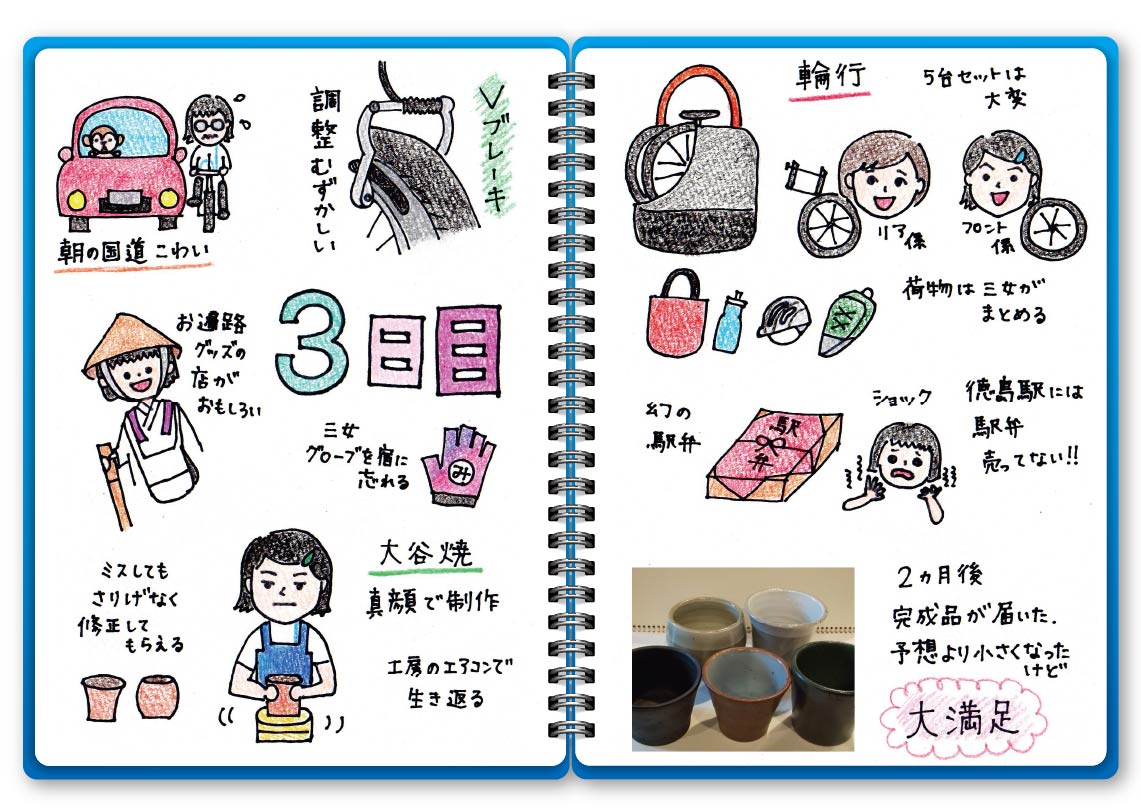 朝の国道こわい
調整むずかしい
Vブレーキ
お遍路
グッズの
店が
おもしろい
3日目
三女
グローブを宿に
忘れる
み
ミスしても
さりげなく
修正して
もらえる
大谷焼
真顔で制作
工房のエアコンで
生き返る
輪行
5台セットは
大変
リア
係
フロント
係
荷物は三女が
まとめる
幻の
駅弁
駅
弁
ショック
徳島駅には
駅弁
売ってない!!
2ヵ月後
完成品が届いた.
予想より小さくなった
けど
大満足